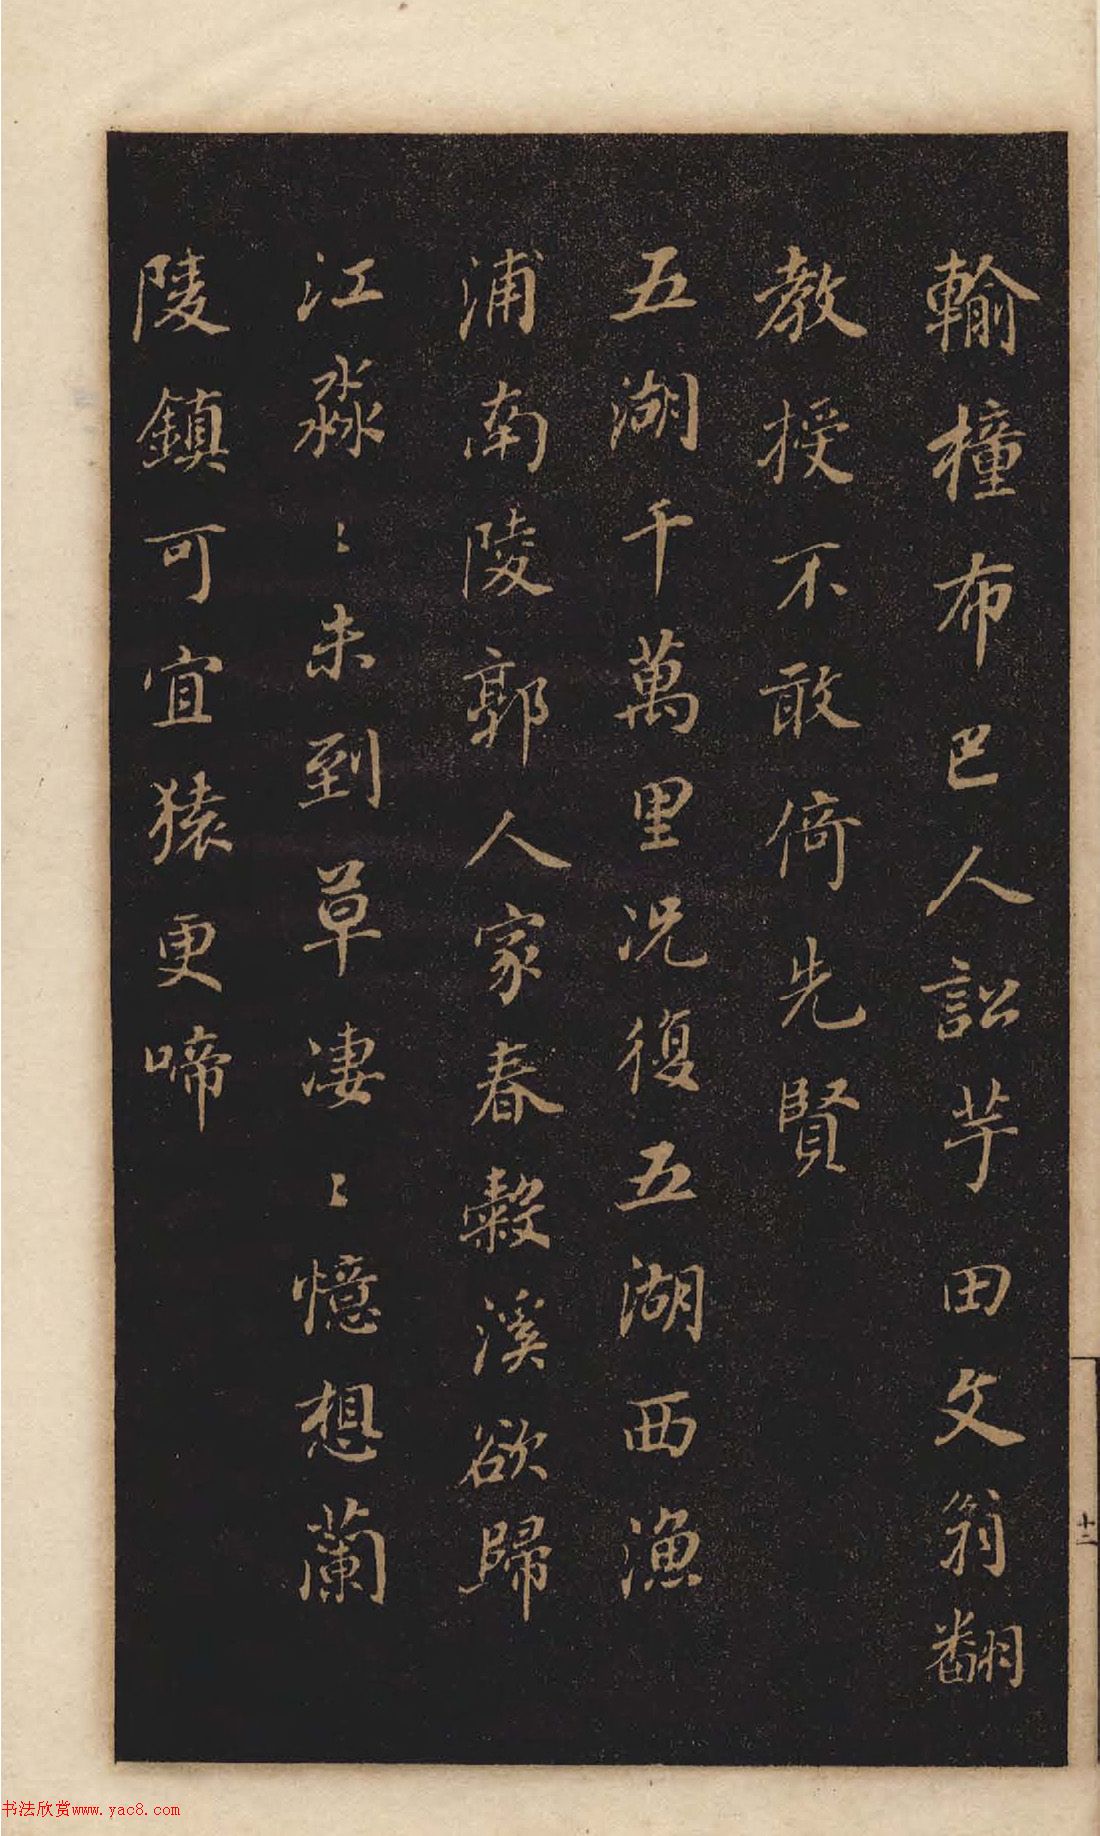 輸橦布巴人訟芋田文翁翻
教授不敢倚先賢
五湖千萬里況復五湖西漁
浦南陵郭人家春穀溪欲歸
江淼〻未到草凄〻憶想蘭
陵鎮可宜猿更啼
十二
书法欣赏www.yac8.com